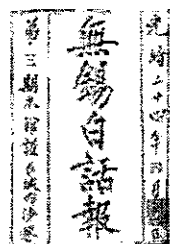 光緒二十四年四月
無錫白話報
第三期本館設